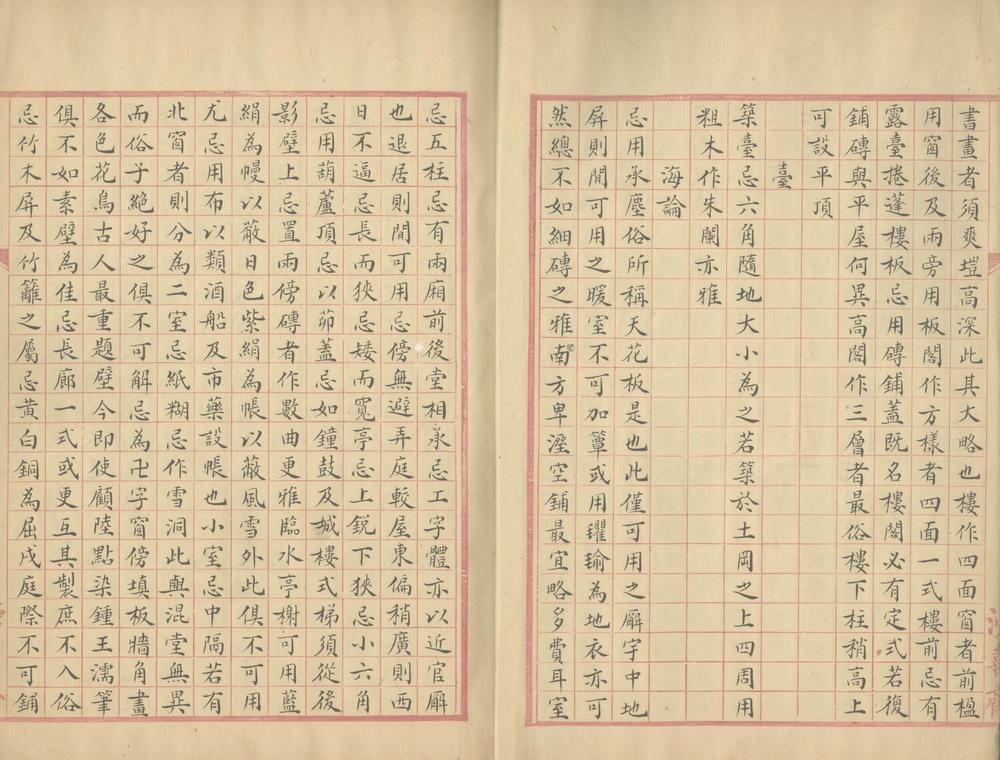 書畫者須爽塏高深此其大略也樓作四面窗者前楹
用窗後及兩旁用板閣作方樣者四面一式樓前忌有
露臺捲蓬樓板忌用磚鋪蓋既名樓閣必有定式若復
鋪磚與平屋何異高閣作三層者最俗樓下柱稍高上
可設平頂
臺
築臺忌六角隨地大小為之若築於土岡之上四周用
粗木作朱闌亦雅
海論
忌用承塵俗所稱天花板是也此僅可用之廨宇中地
屏則間可用之暖室不可加簟或用氍毹為地衣亦可
然總不如細磚之雅南方卑溼空鋪最宜略多費耳室
忌五柱忌有兩廂前後堂相承忌工字體亦以近官廨
也退居則間可用忌傍無避弄庭較屋東偏稍廣則西
日不逼忌長而狹忌矮而寬亭忌上銳下狹忌小六角
忌用葫蘆頂忌以茆蓋忌如鐘鼓及城樓式梯須從後
影壁上忌置兩傍磚者作數曲更雅臨水亭榭可用藍
絹為幔以蔽日色紫絹為帳以蔽風雪外此俱不可用
尤忌用布以類酒船及市藥設帳也小室忌中隔若有
北窗者則分為二室忌紙糊忌作雪洞此與混堂無異
而俗子絕好之俱不可解忌為卍字窗傍填板牆角畫
各色花鳥古人最重題壁今即使顧陸點染鍾王濡筆
俱不如素壁為佳忌長廊一式或更互其製庶不入俗
忌竹木屏及竹籬之屬忌黃白銅為屈戌庭際不可鋪